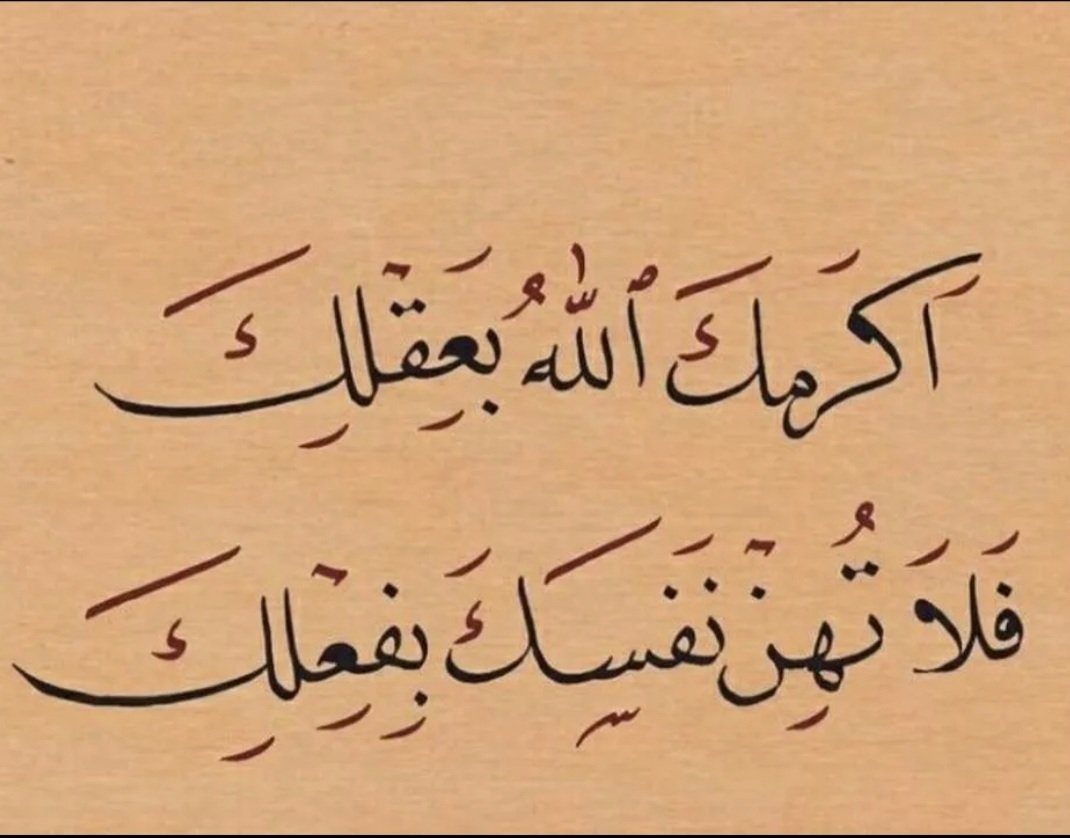 اَكرَمكَ ٱللّٰهُ بعِقْلِكَ
فَلاَ تُهِنْ نَفسِكَ بِفِعْلِكَ